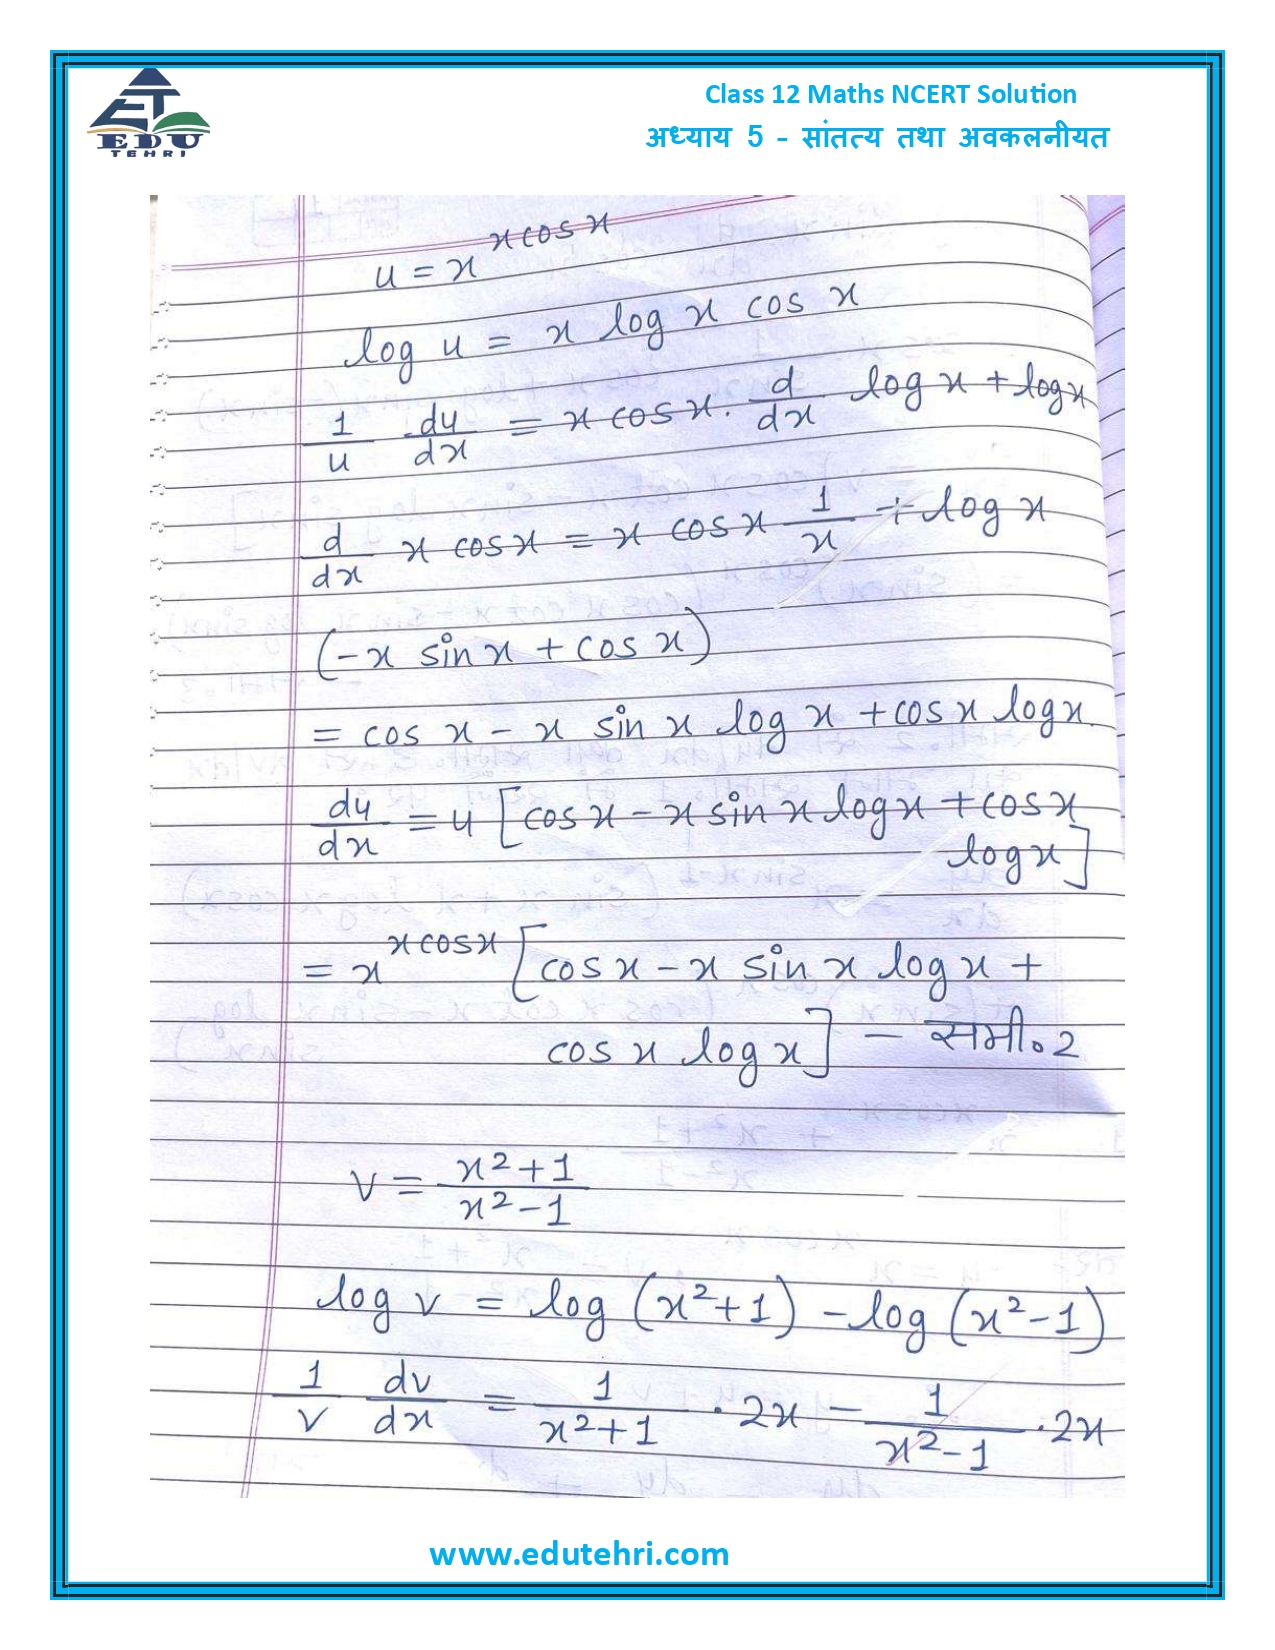 EDU
TEHRI
Class 12 Maths NCERT Solution
अध्याय 5 - सांतत्य तथा अवकलनीयत
u = x^(x cos x)
log u = x log x cos x
1/u du/dx = x cos x . d/dx log x + log x
d/dx x cos x = x cos x 1/x + log x
(-x sin x + cos x)
= cos x - x sin x log x + cos x log x.
du/dx = u [cos x - x sin x log x + cos x
log x]
= x^(x cos x) [cos x - x sin x log x +
cos x log x] - समी॰ 2
v = (x² + 1)/(x² - 1)
log v = log (x² + 1) - log (x² - 1)
1/v dv/dx = 1/(x² + 1) · 2x - 1/(x² - 1) · 2x
www.edutehri.com